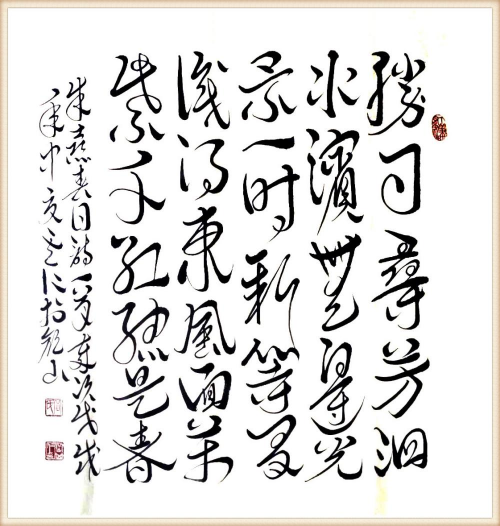 勝日尋芳泗
水濱無邊光
景一时新等閒
識得東風面萬
紫千紅總是春
朱熹春日詩一首歲次戊戌
年中夏